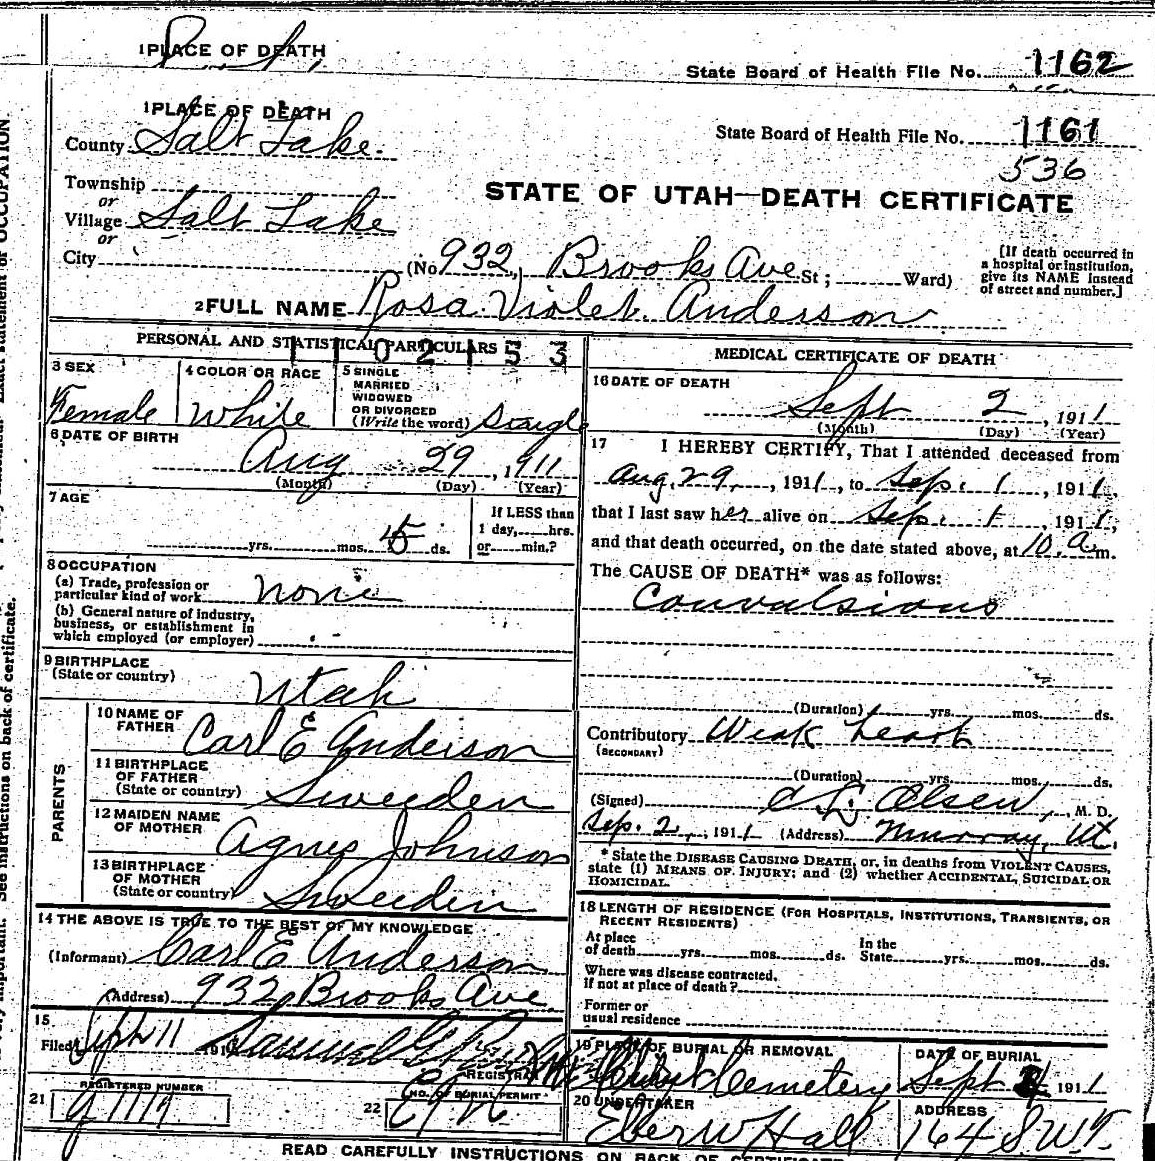 1 PLACE OF DEATH
State Board of Health File No. 1162
1 PLACE OF DEATH
County Salt Lake.
State Board of Health File No. 1161
536
Township
or
STATE OF UTAH—DEATH CERTIFICATE
Village Salt Lake
or
City (No 932, Brooks Ave St; Ward)
[If death occurred in
a hospital or institution,
give its NAME instead
of street and number.]
2 FULL NAME Rosa Violet Anderson
PERSONAL AND STATISTICAL PARTICULARS
1102153
3 SEX
Female
4 COLOR OR RACE
White
5 SINGLE
MARRIED
WIDOWED
OR DIVORCED
(Write the word) Single
6 DATE OF BIRTH
Aug 29, 1911
(Month) (Day) (Year)
7 AGE
yrs. mos. 5 ds.
If LESS than
1 day, hrs.
or min.?
8 OCCUPATION
(a) Trade, profession or
particular kind of work none
(b) General nature of industry,
business, or establishment in
which employed (or employer)
9 BIRTHPLACE
(State or country)
Utah
PARENTS
10 NAME OF
FATHER Carl E Anderson
11 BIRTHPLACE
OF FATHER
(State or country) Sweeden
12 MAIDEN NAME
OF MOTHER Agnes Johnson
13 BIRTHPLACE
OF MOTHER
(State or country) Sweeden
14 THE ABOVE IS TRUE TO THE BEST OF MY KNOWLEDGE
(Informant) Carl E Anderson
(Address) 932 Brooks Ave
15
Filed Sept 11 191 Samuel G
REGISTRAR
REGISTERED NUMBER
21
NO. OF BURIAL PERMIT
22
MEDICAL CERTIFICATE OF DEATH
16 DATE OF DEATH
Sept 2, 1911
(Month) (Day) (Year)
17 I HEREBY CERTIFY, That I attended deceased from
Aug. 29, 1911, to Sep. 1, 1911,
that I last saw her alive on Sep. 1, 1911,
and that death occurred, on the date stated above, at 10 a m.
The CAUSE OF DEATH* was as follows:
Convulsions
(Duration) yrs. mos. ds.
Contributory Weak heart
(SECONDARY)
(Duration) yrs. mos. ds.
(Signed) C L Olsen, M. D.
Sep. 2, 1911 (Address) Murray, Ut.
* State the DISEASE CAUSING DEATH, or, in deaths from VIOLENT CAUSES,
state (1) MEANS OF INJURY; and (2) whether ACCIDENTAL, SUICIDAL OR
HOMICIDAL.
18 LENGTH OF RESIDENCE (FOR HOSPITALS, INSTITUTIONS, TRANSIENTS, OR
RECENT RESIDENTS)
At place
of death yrs. mos. ds.
In the
State yrs. mos. ds.
Where was disease contracted.
if not at place of death?
Former or
usual residence
19 PLACE OF BURIAL OR REMOVAL
Cemetery
DATE OF BURIAL
Sept 1911
20 UNDERTAKER
Eber W Hall
ADDRESS
164 S W T.
READ CAREFULLY INSTRUCTIONS ON BACK OF CERTIFICATE
very important. See instructions on back of certificate. Exact statement of OCCUPATION